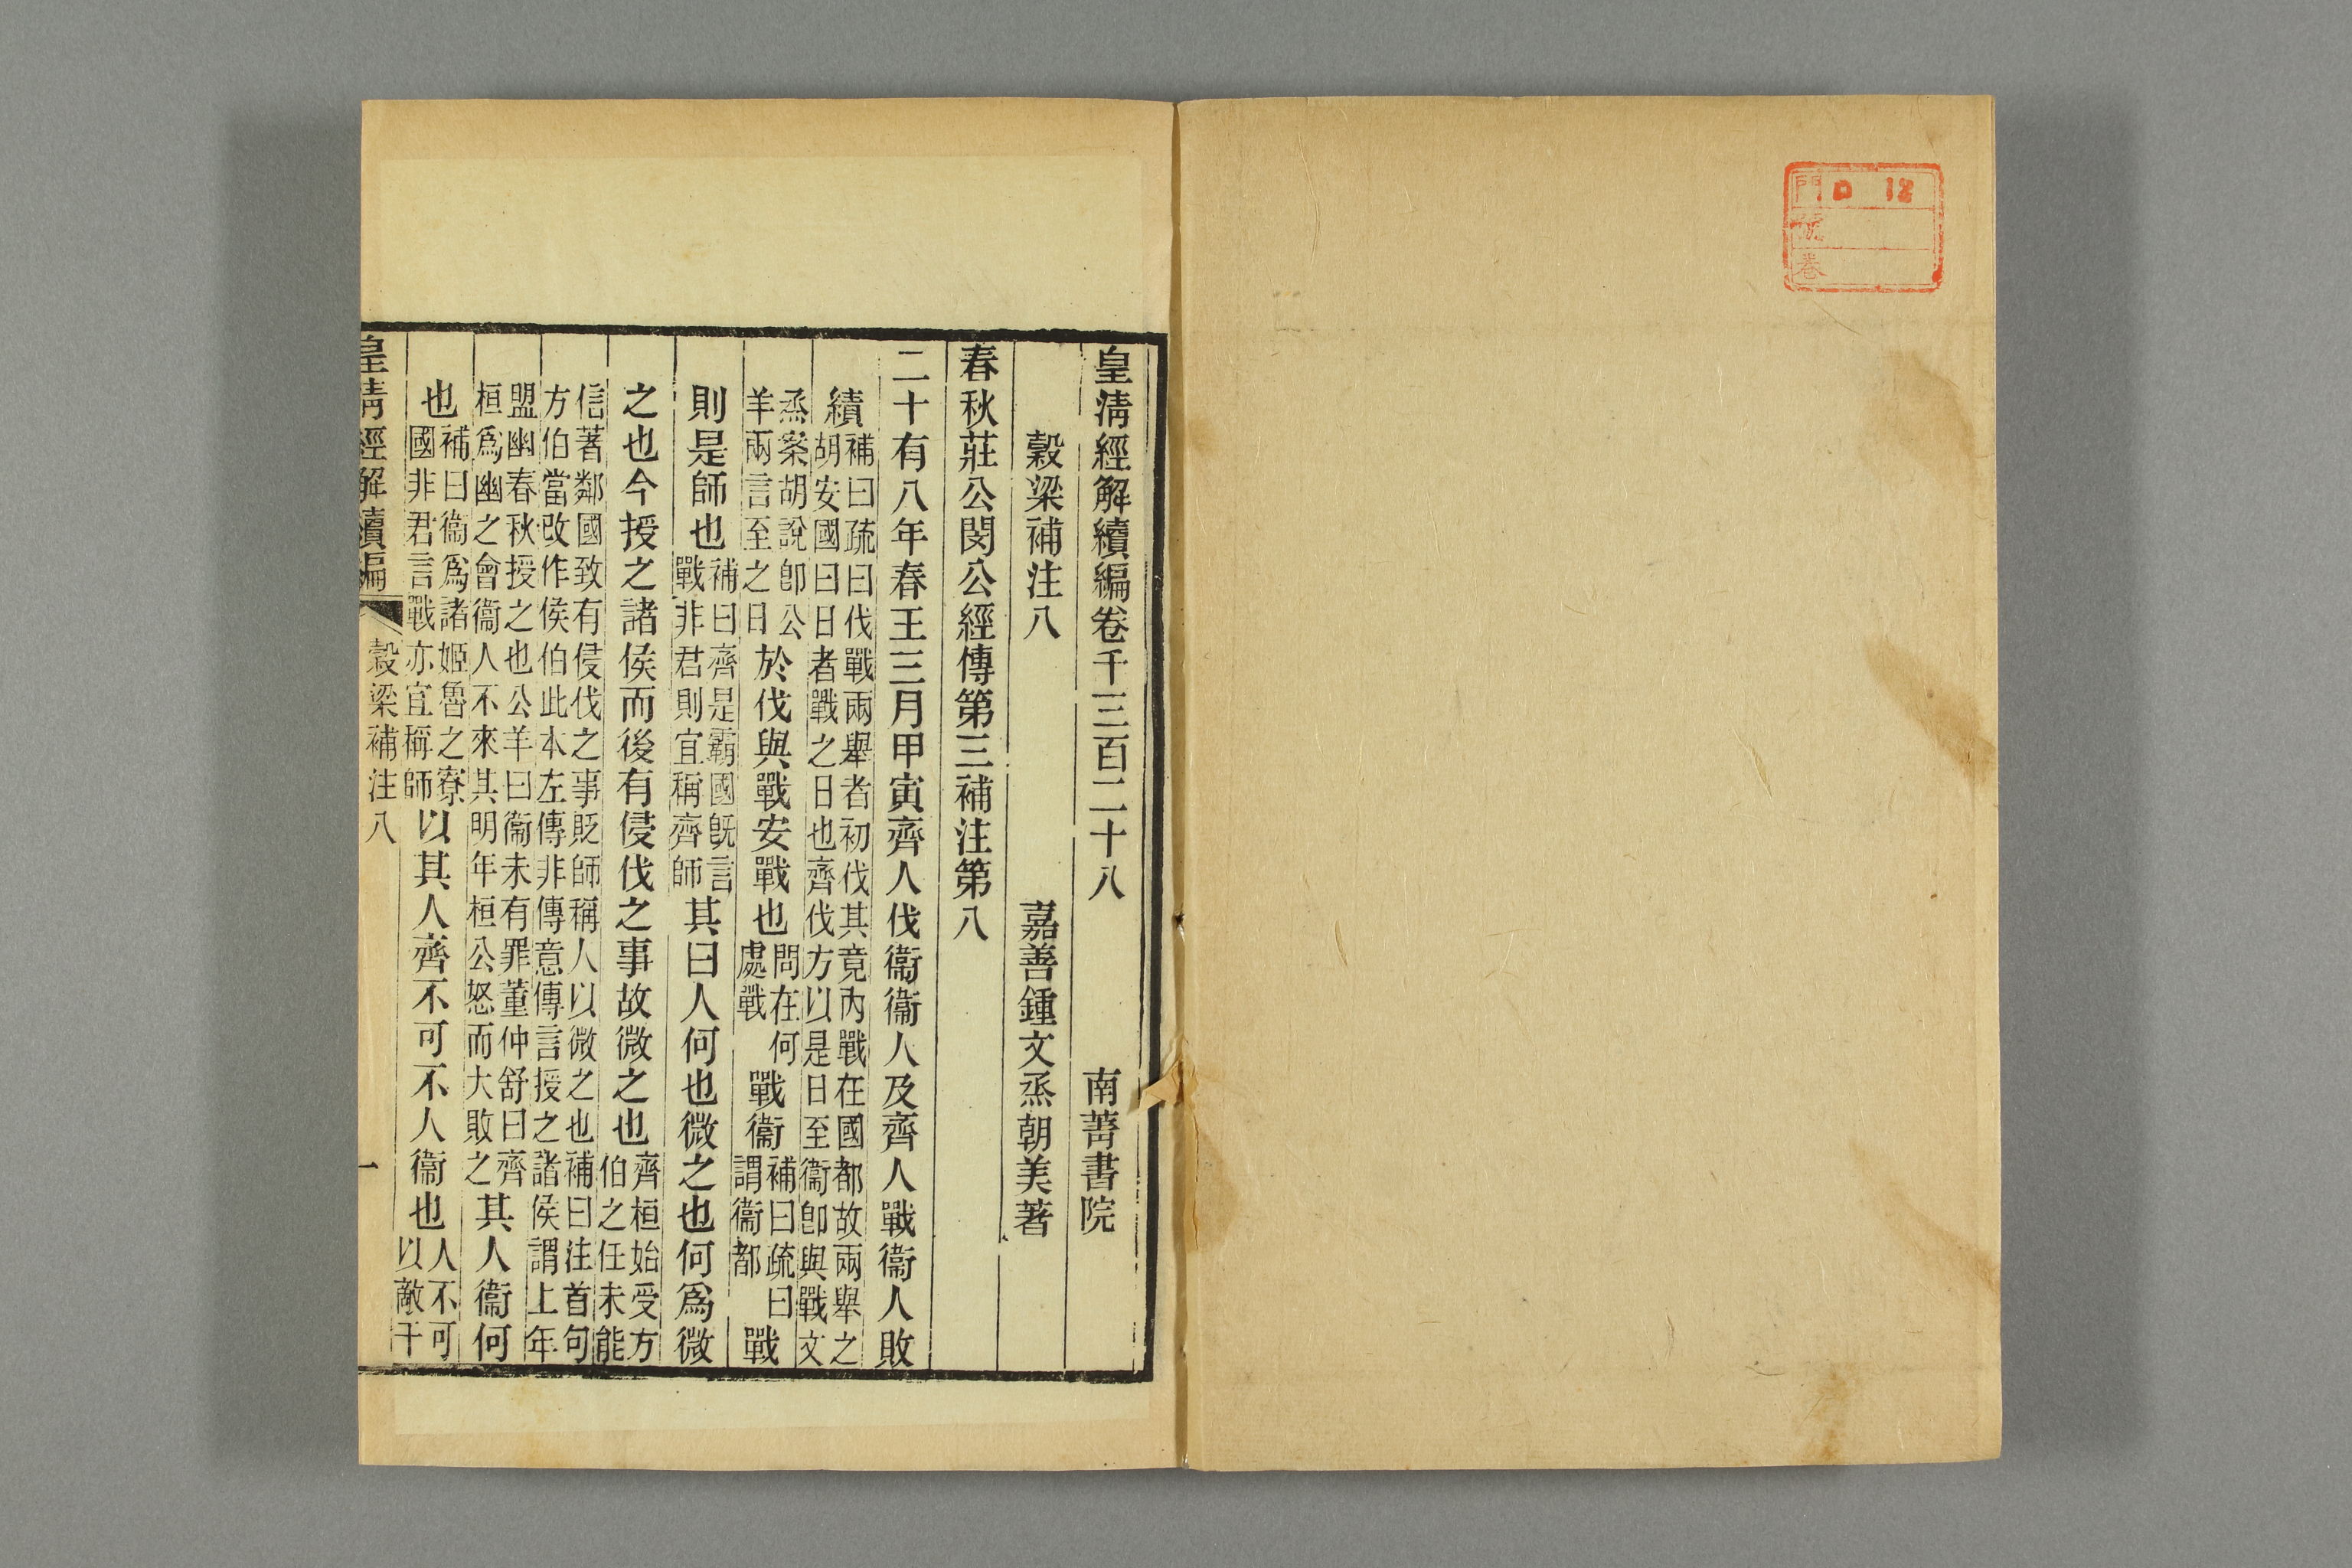 門 D 12
號
卷
皇淸經解續編卷千三百二十八 南菁書院
穀梁補注八 嘉善鍾文烝朝美著
春秋莊公閔公經傳第三補注第八
二十有八年春王三月甲寅齊人伐衞衞人及齊人戰衞人敗
績補曰疏曰伐戰兩舉者初伐其竟內戰在國都故兩舉之胡安國曰日者戰之日也齊伐方以是日至衞卽與戰文
烝案胡說卽公羊兩言至之日於伐與戰安戰也問在何處戰戰衞補曰疏曰謂衞都戰
則是師也補曰齊是霸國旣言戰非君則宜稱齊師其曰人何也微之也何爲微
之也今授之諸侯而後有侵伐之事故微之也齊桓始受方伯之任未能
信著鄰國致有侵伐之事貶師稱人以微之也補曰注首句方伯當改作侯伯此本左傳非傳意傳言授之諸侯謂上年
盟幽春秋授之也公羊曰衞未有罪董仲舒曰齊桓爲幽之會衞人不來其明年桓公怒而大敗之其人衞何
也補曰衞爲諸姬魯之寮國非君言戰亦宜稱師以其人齊不可不人衞也人不可以敵于
皇淸經解續編 穀梁補注八 一